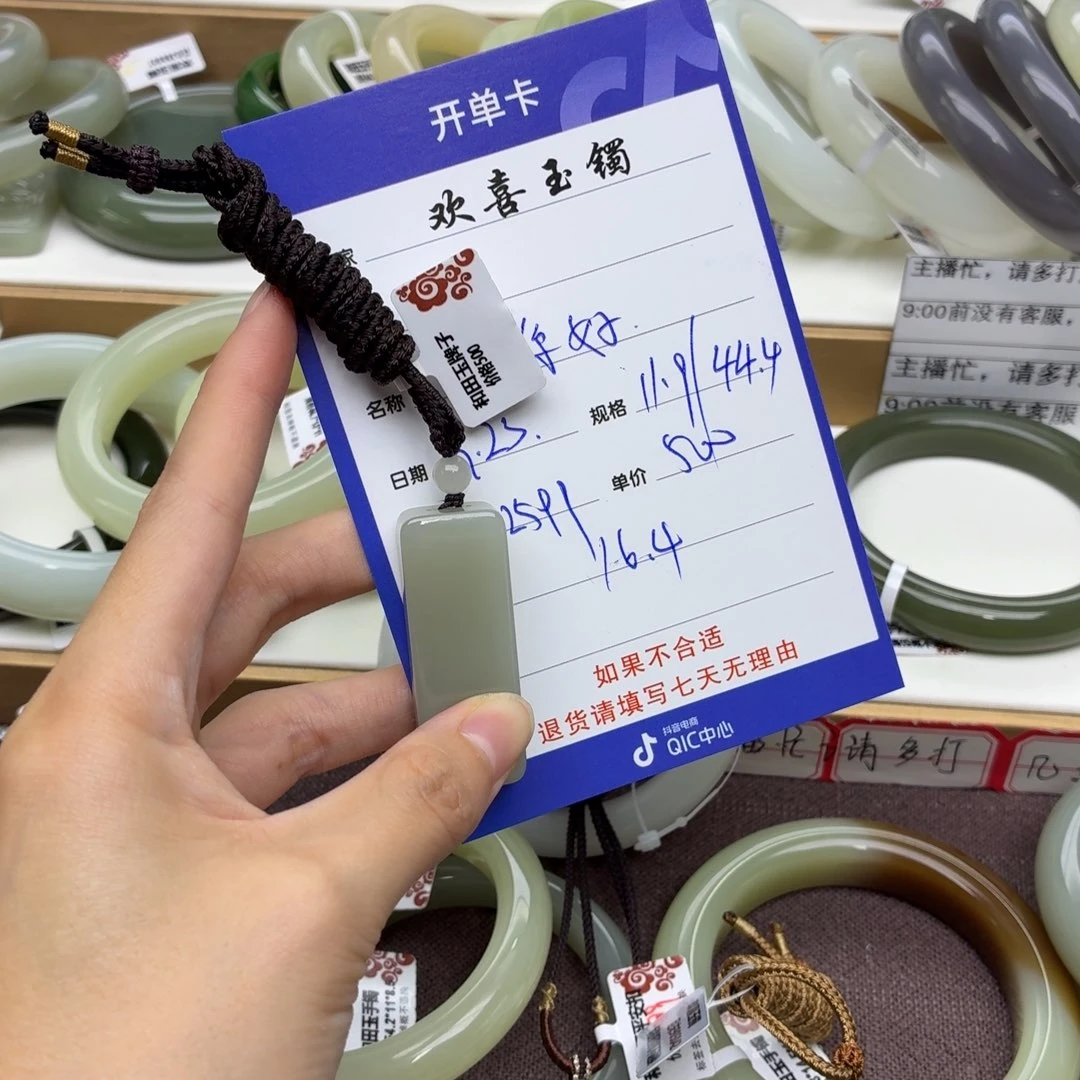 开单卡
欢喜玉镯
家
好
和田玉牌子
价格500
名称
规格 11.9/44.4
日期
.23.
单价 500
2591
16.4
如果不合适
退货请填写七天无理由
抖音电商
QIC中心
主播忙，请多打
9:00前没有客服，
主播忙，请多打
9:00前没有客服
忙，请多打
和田玉手镯